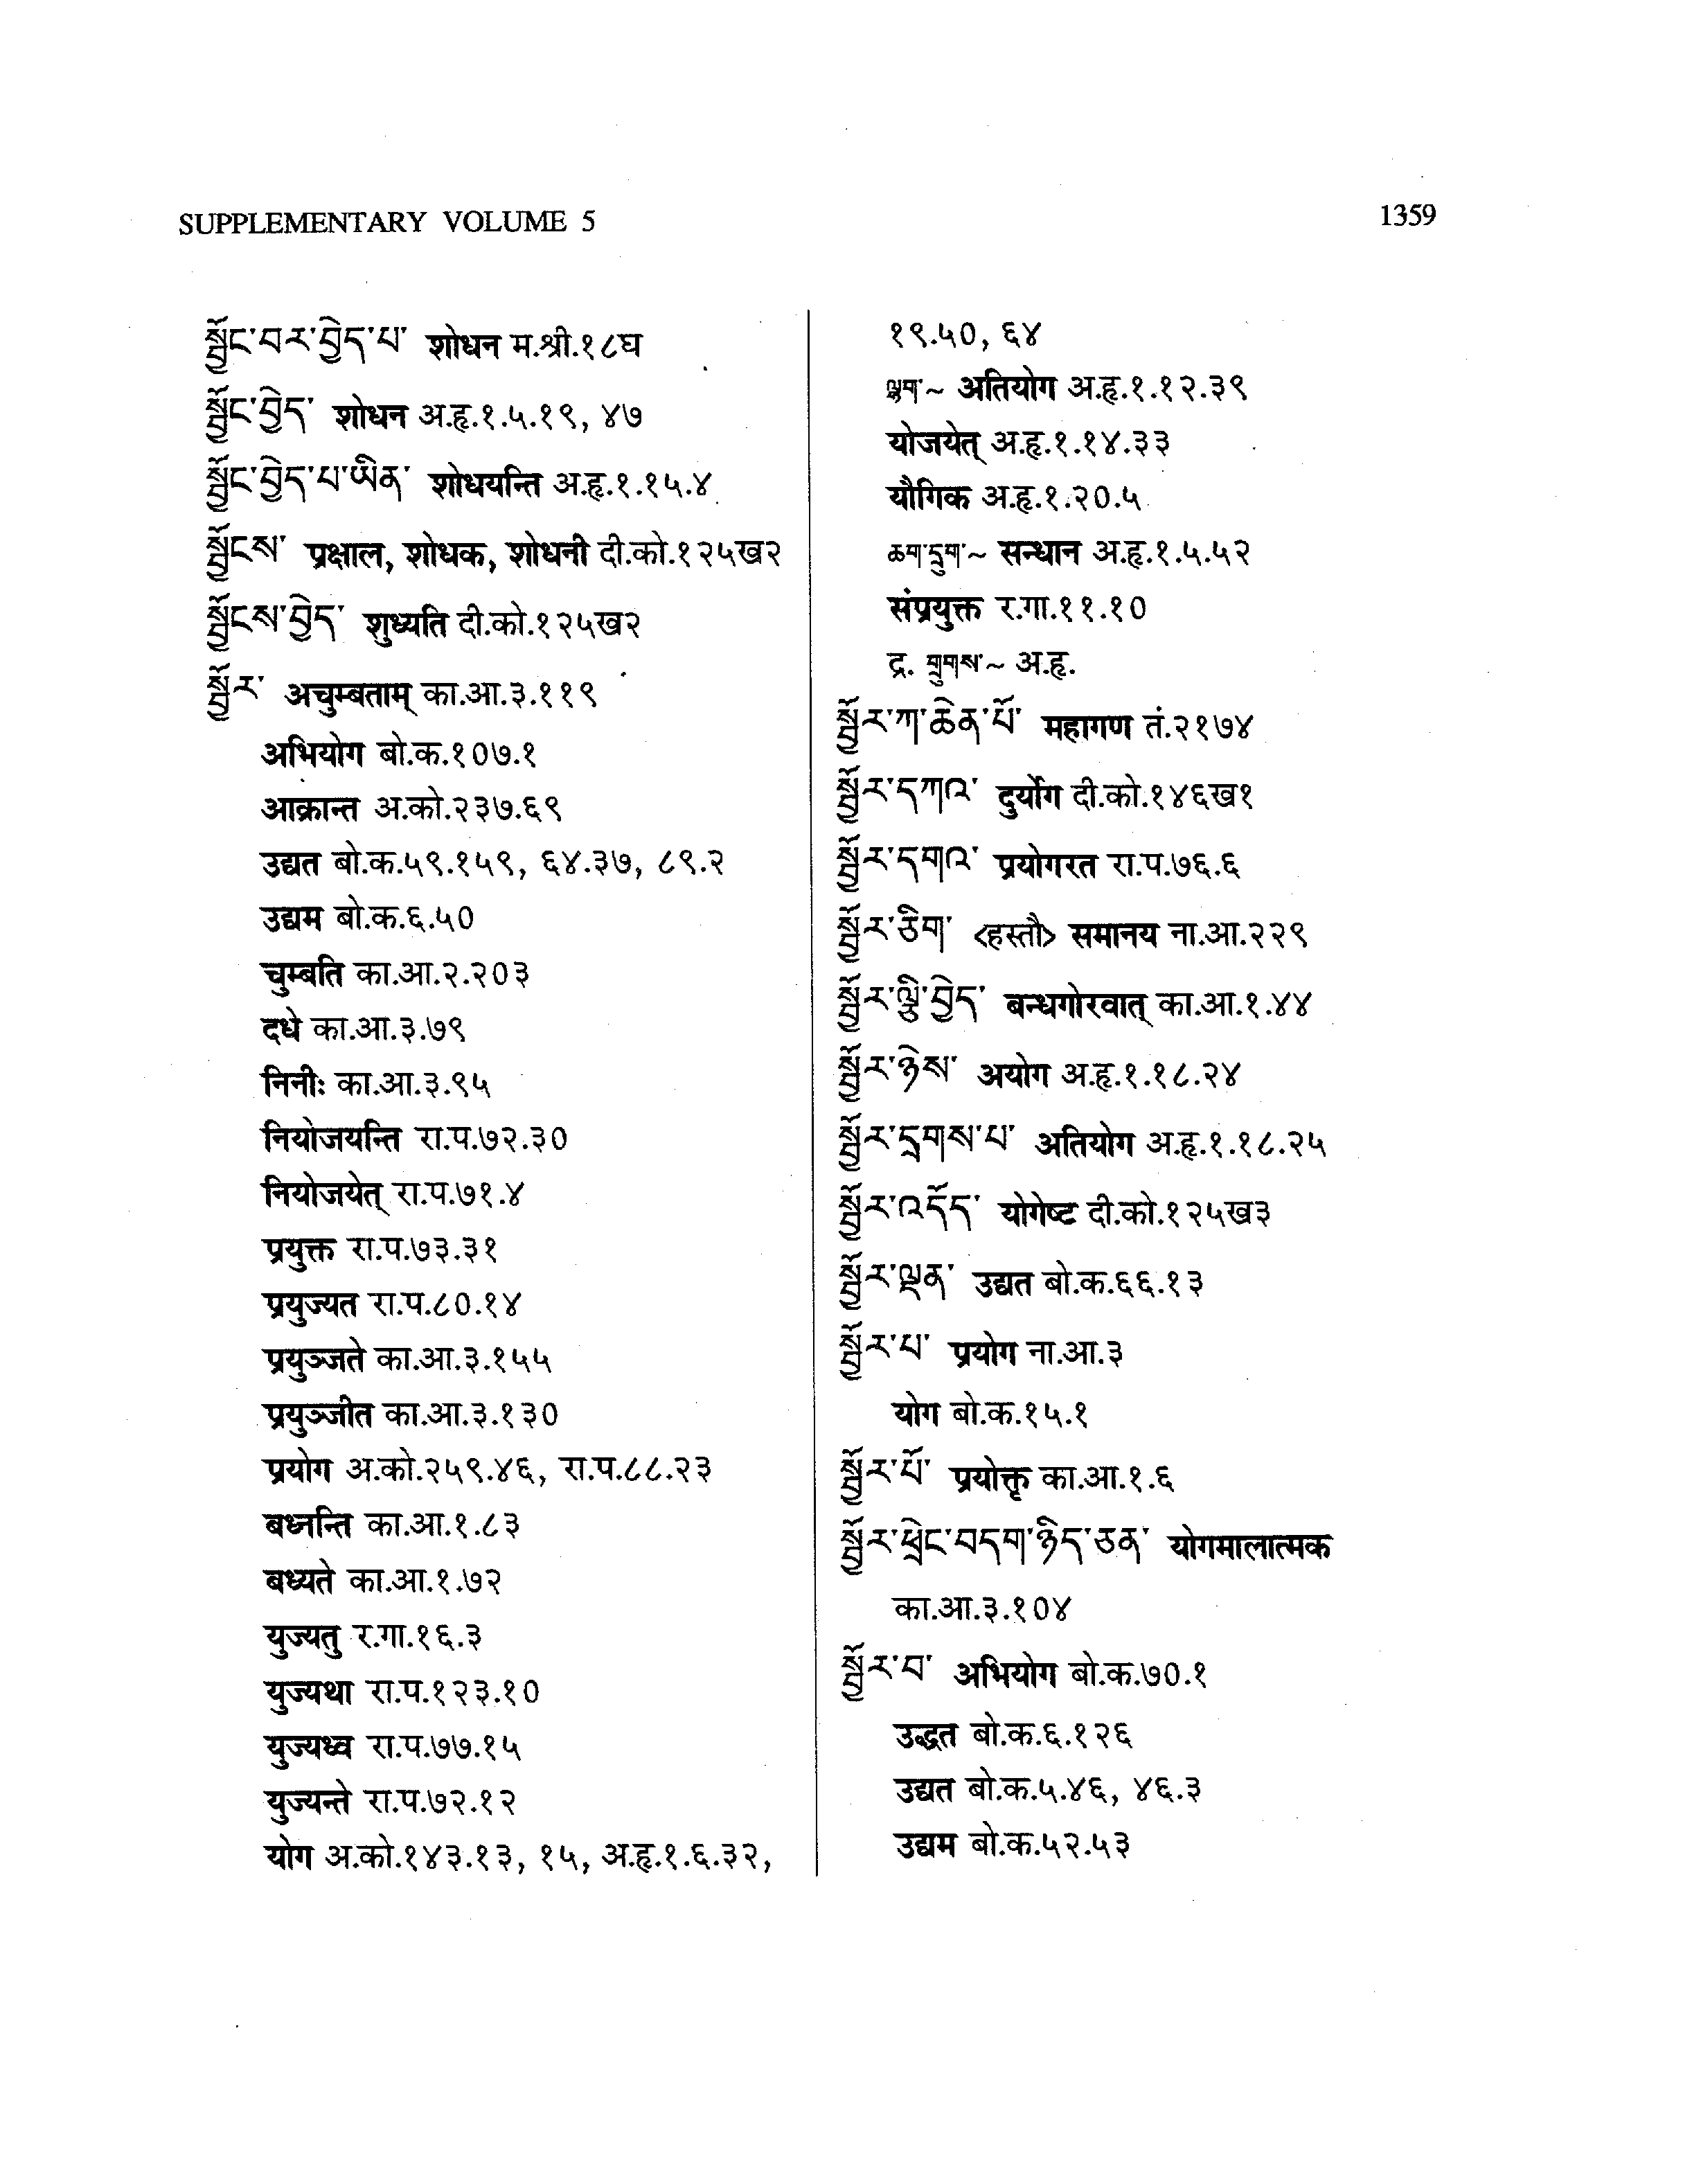 SUPPLEMENTARY VOLUME 5
1359
སྦྱོང་བར་བྱེད་པ་ शोधन म.श्री.१८घ
སྦྱོང་བྱེད་ शोधन अ.हृ.१.५.१९, ४७
སྦྱོང་བྱེད་པ་ཡིན་ शोधयन्ति अ.हृ.१.१५.४
སྦྱོངས་ प्रक्षाल, शोधक, शोधनी दी.को.१२५ख२
སྦྱོངས་བྱེད་ शुध्यति दी.को.१२५ख२
སྦྱོར་ अचुम्बताम् का.आ.३.११९
अभियोग बो.क.१०७.१
आक्रान्त अ.को.२३७.६९
उद्यत बो.क.५९.१५९, ६४.३७, ८९.२
उद्यम बो.क.६.५०
चुम्बति का.आ.२.२०३
दधे का.आ.३.७९
निनीः का.आ.३.९५
नियोजयन्ति रा.प.७२.३०
नियोजयेत् रा.प.७१.४
प्रयुक्त रा.प.७३.३१
प्रयुज्यत रा.प.८०.१४
प्रयुञ्जते का.आ.३.१५५
प्रयुञ्जीत का.आ.३.१३०
प्रयोग अ.को.२५९.४६, रा.प.८८.२३
बध्नन्ति का.आ.१.८३
बध्यते का.आ.१.७२
युज्यतु र.गा.१६.३
युज्यथा रा.प.१२३.१०
युज्यध्व रा.प.७७.१५
युज्यन्ते रा.प.७२.१२
योग अ.को.१४३.१३, १५, अ.हृ.१.६.३२,
१९.५०, ६४
ལྷག་~ अतियोग अ.हृ.१.१२.३९
योजयेत् अ.हृ.१.१४.३३
यौगिक अ.हृ.१.२०.५
ཆག་དྲུག་~ सन्धान अ.हृ.१.५.५२
संप्रयुक्त र.गा.११.१०
द्र. གྲུགས་~ अ.हृ.
སྦྱོར་ཀ་ཆེན་པོ་ महागण तं.२१७४
སྦྱོར་དཀའ་ दुर्योग दी.को.१४६ख१
སྦྱོར་དགའ་ प्रयोगरत रा.प.७६.६
སྦྱོར་ཅིག་ <हस्तौ> समानय ना.आ.२२९
སྦྱོར་ལྕི་བྱེད་ बन्धगोरवात् का.आ.१.४४
སྦྱོར་ཉེས་ अयोग अ.हृ.१.१८.२४
སྦྱོར་དྲགས་པ་ अतियोग अ.हृ.१.१८.२५
སྦྱོར་འདོད་ योगेष्ट दी.को.१२५ख३
སྦྱོར་ལྡན་ उद्यत बो.क.६६.१३
སྦྱོར་པ་ प्रयोग ना.आ.३
योग बो.क.१५.१
སྦྱོར་པོ་ प्रयोक्तृ का.आ.१.६
སྦྱོར་ཕྲེང་བདག་ཉིད་ཅན་ योगमालात्मक
का.आ.३.१०४
སྦྱོར་བ་ अभियोग बो.क.७०.१
उद्धत बो.क.६.१२६
उद्यत बो.क.५.४६, ४६.३
उद्यम बो.क.५२.५३